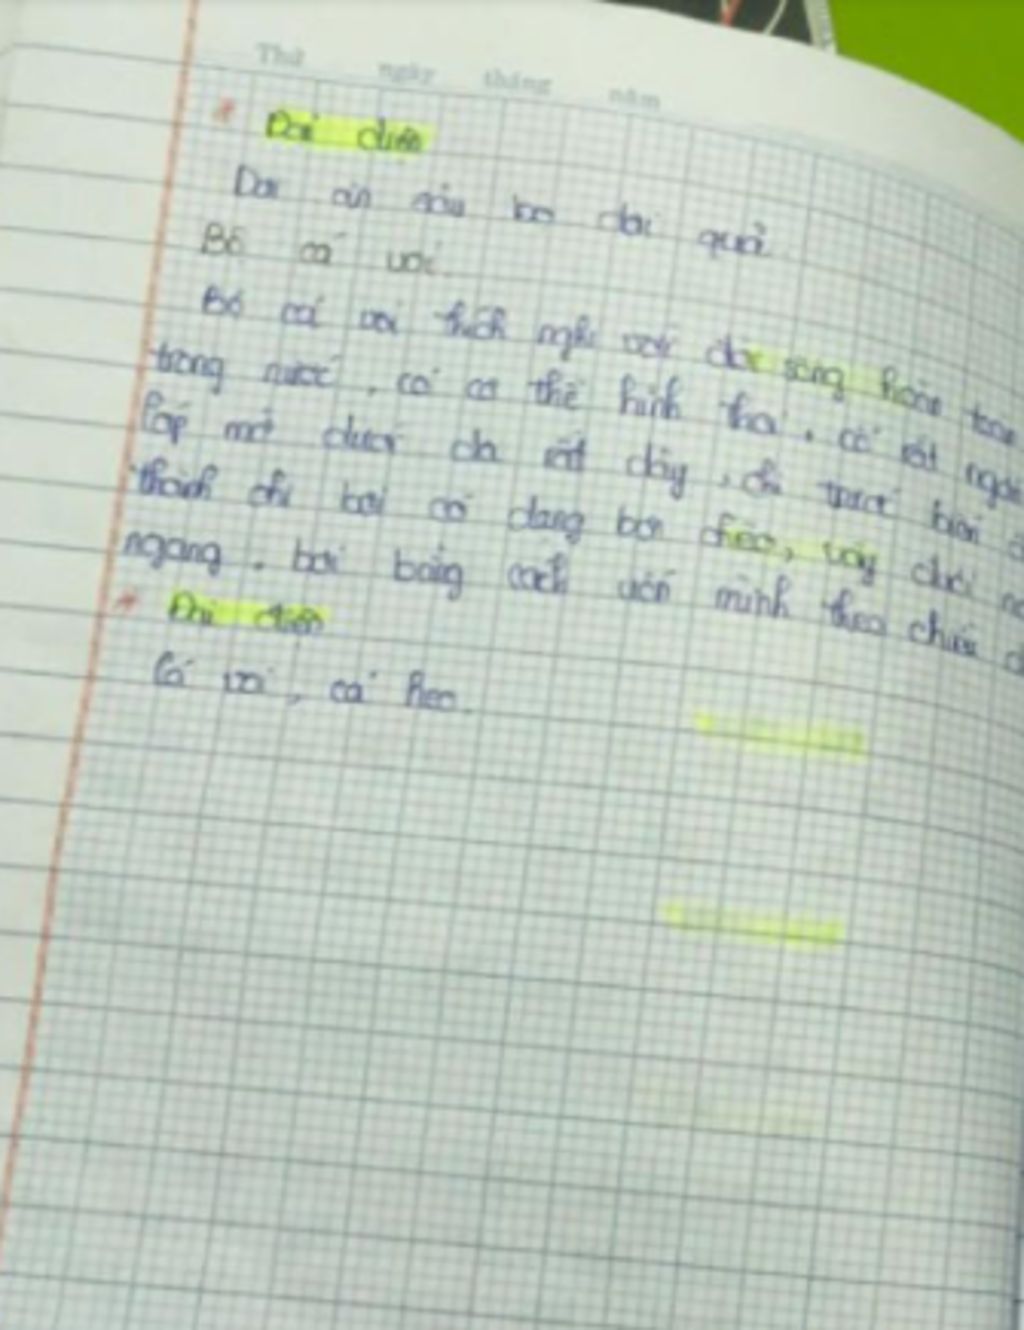 Thứ ngày tháng năm
* Đại diện
Dơi ăn sâu bọ dơi quả
Bộ cá voi
Bộ cá voi thích nghi với đời sống hoàn toàn
trong nước, có cơ thể hình thoi, cổ rất ngắn
lớp mỡ dưới da rất dày, chi trước biến
thành chi bơi có dạng bơi chèo, vây đuôi
ngang, bơi bằng cách uốn mình theo chiều
* Đại diện
Cá voi, cá heo.